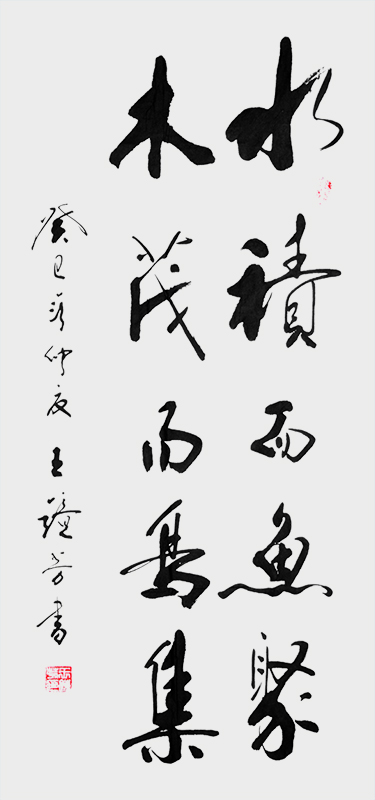 水積而魚聚
木茂而鳥集
癸巳歲仲夏王芳書